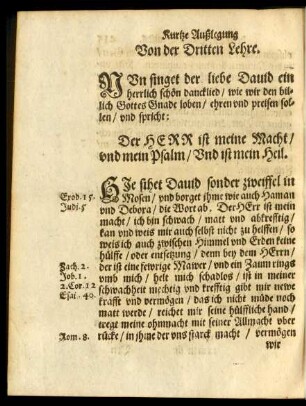 Kurtze Außlegung
Von der Dritten Lehre.
NUn singet der liebe Dauid ein
herrlich schön dancklied / wie wir den bil-
lich Gottes Gnade loben / ehren vnd preisen sol-
len / vnd spricht:
Der HERR ist meine Macht /
vnd mein Psalm / Vnd ist mein Heil.
HJe sihet Dauid sonder zweiffel in
Exod. 15. Mosen / vnd borget ihme wie auch Hanna
Judi. 5 vnd Debora / die Wort ab. Der HErr ist mein
macht / ich bin schwach / matt vnd abkrefftig /
kan vnd weis mir auch selbst nicht zu helffen / so
weis ich auch zwischen Himmel vnd Erden keine
hülffe / oder entsetzung / denn bey dem HErrn /
Zach. 2. der ist eine fewrige Mawer / vnd ein Zaun rings
Job. 1. vmb mich / helt mich schadlos / ist in meiner
2. Cor. 12 schwachheit mechtig vnd krefftig gibt mir newe
Esai. 40. krafft vnd vermögen / das ich nicht müde noch
matt werde / reichet mir seine hülffliche hand /
wegt meine ohnmacht mit seiner Allmacht vber
Rom. 8. rücke / in jhme der vns starck macht / vermögen
wir